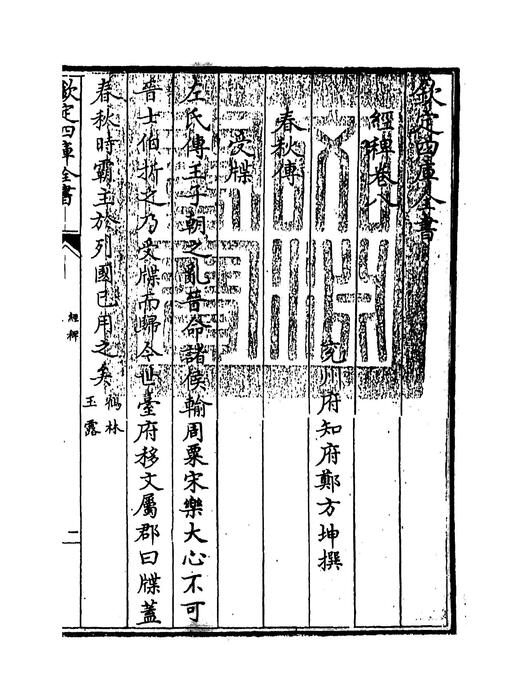 欽定四庫全書
經稗卷八
兖州府知府鄭方坤撰
春秋傳
受牒
左氏傳王子朝之亂晉命諸侯輸周粟宋樂大心不可
晉士伯折之乃受牒而歸今世臺府移文屬郡曰牒蓋
春秋時霸主於列國已用之矣
鶴林
玉露
欽定四庫全書
經稗